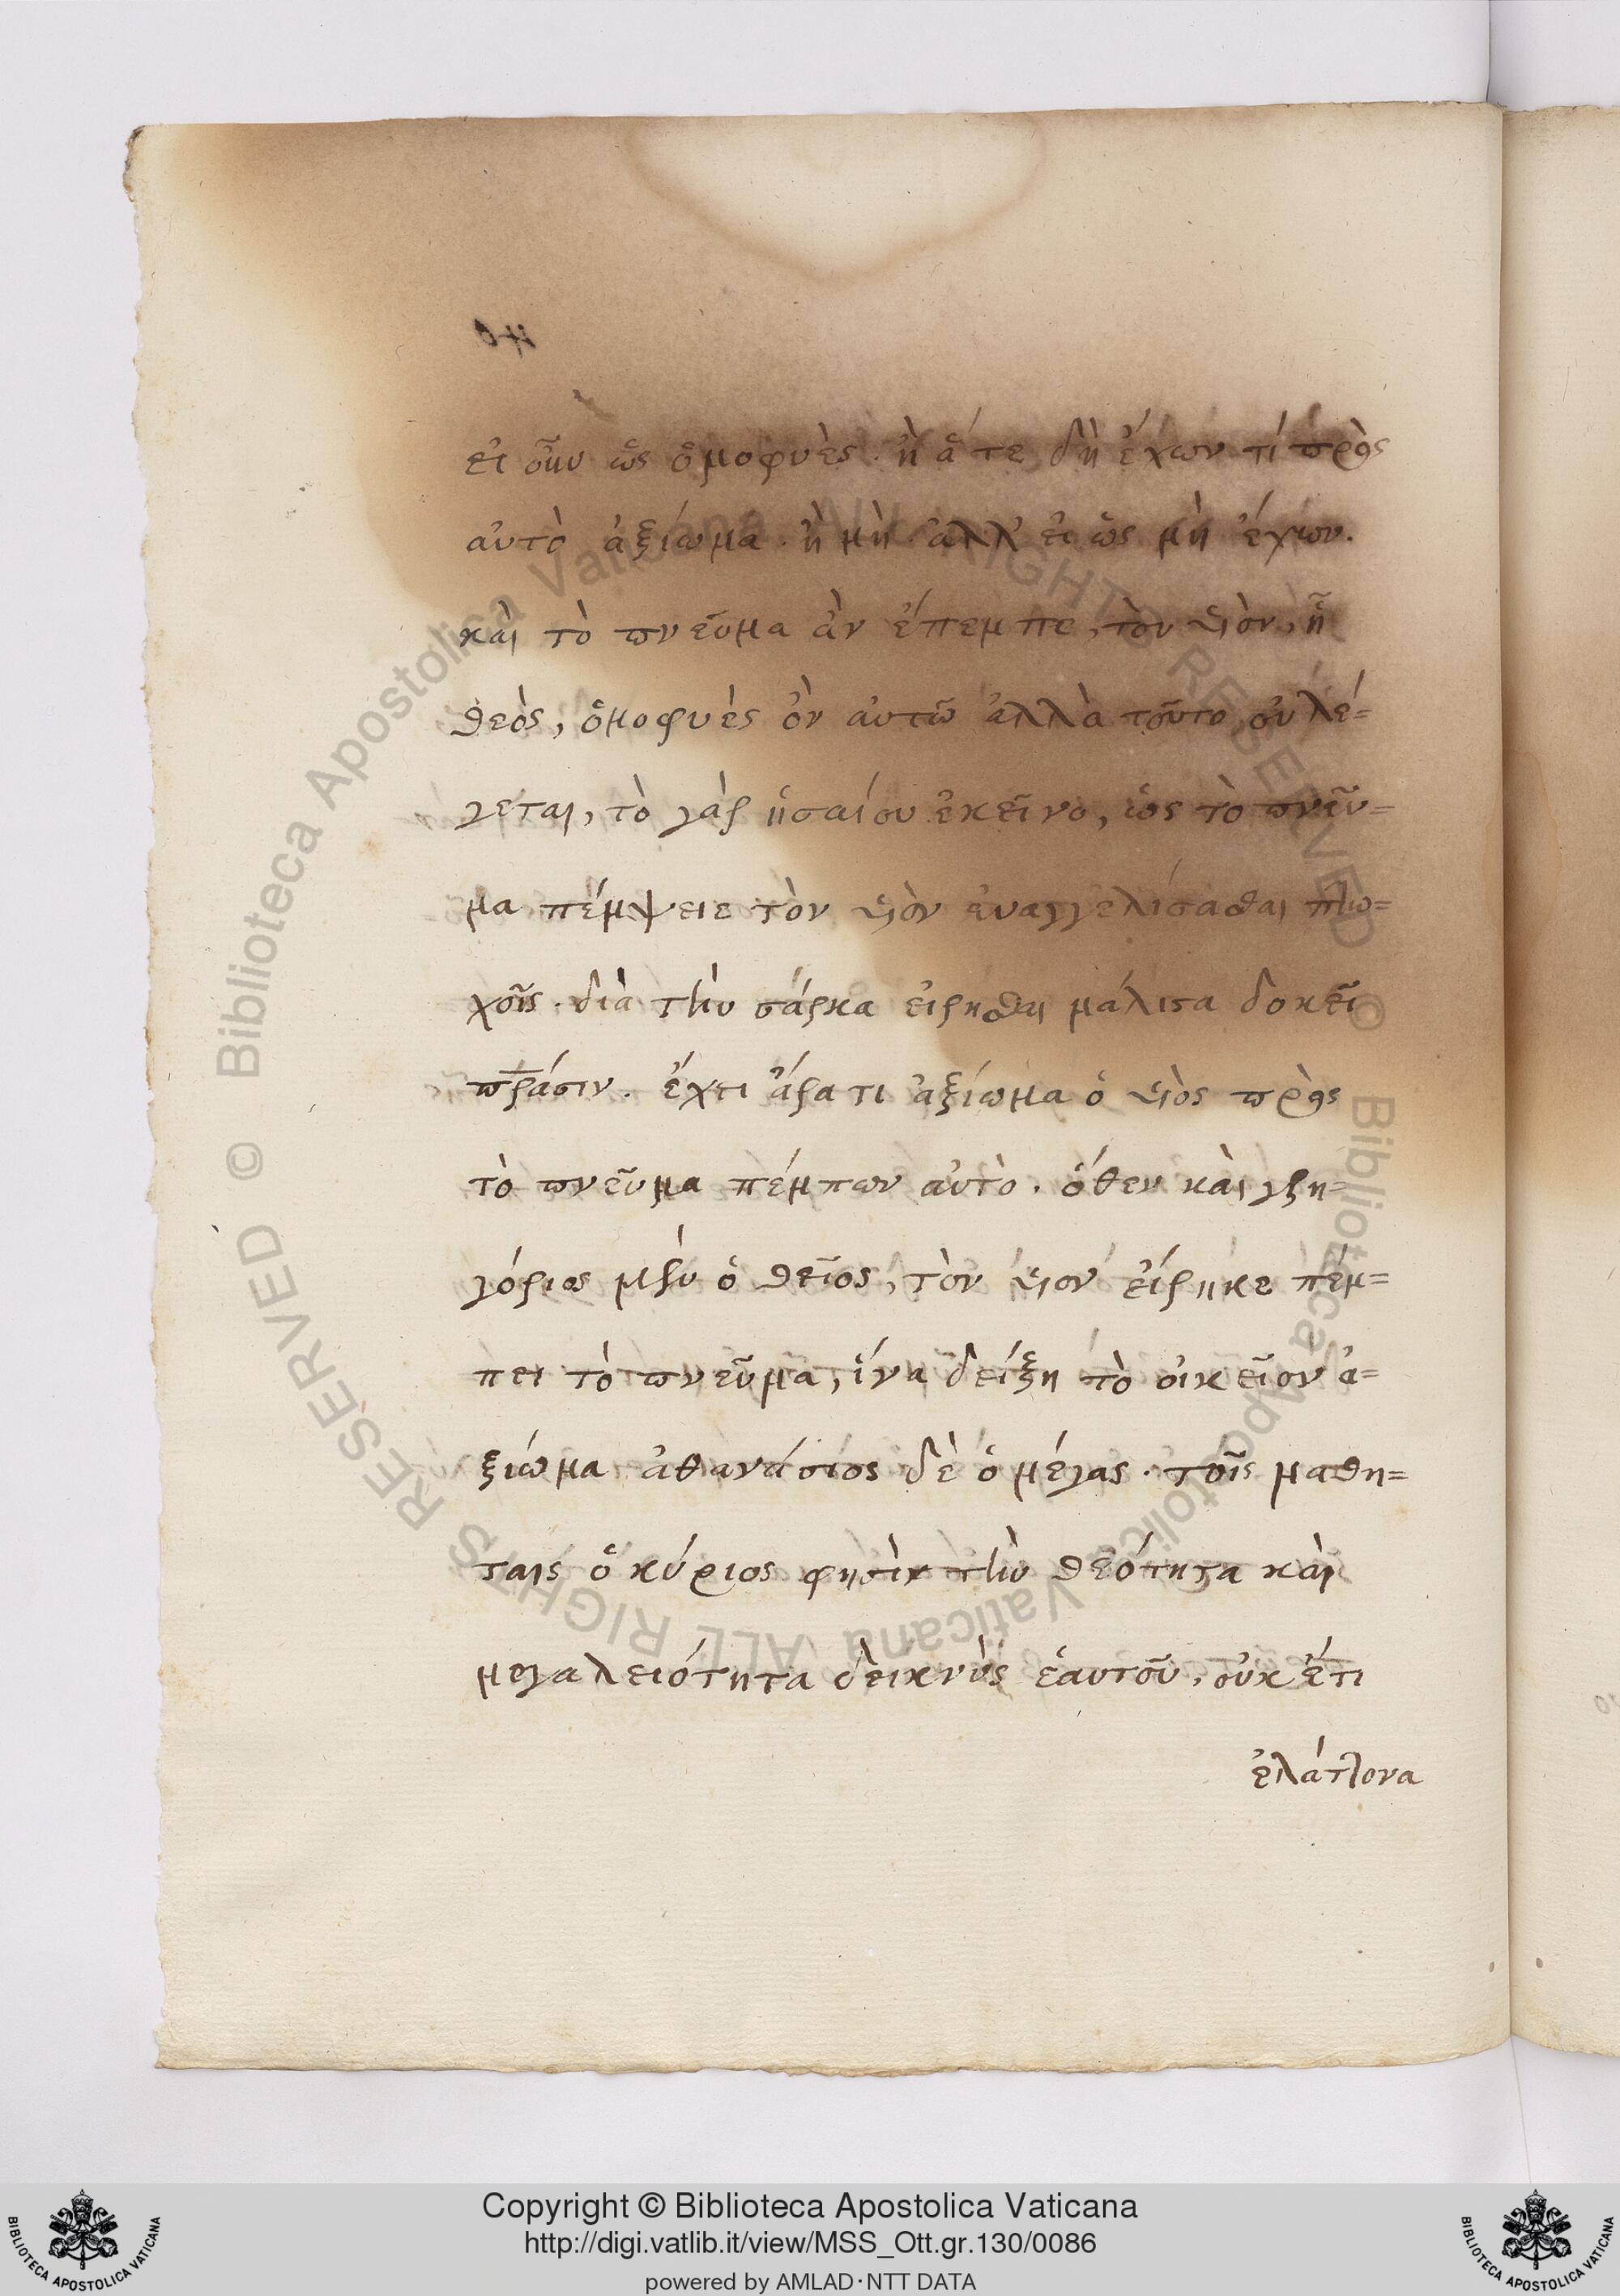 εἰ οὖν ὡς ὁμοφυὲς. ἢ ἅτε δὴ ἔχων τί πρὸς
αὐτὸ ἀξίωμα. ἢ μὴ. ἀλλ' εἰ ὡς μὴ ἔχων.
καὶ τὸ πνεῦμα ἂν ἔπεμπε, τὸν υἱὸν, ᾗ
θεὸς, ὁμοφυὲς ὂν αὐτῶ ἀλλὰ τοῦτο οὐ λέ=
γεται, τὸ γὰρ ἡσαίου ἐκεῖνο, ὡς τὸ πνεῦ=
μα πέμψειε τὸν υἱὸν εὐαγγελίσασθαι πτω=
χοῖς. διὰ τὴν σάρκα εἰρῆσθαι μάλιστα δοκεῖ
πᾶσιν. ἔχει ἄρα τι ἀξίωμα ὁ υἱὸς πρὸς
τὸ πνεῦμα πέμπων αὐτὸ. ὅθεν καὶ γρη=
γόριος μὲν ὁ θεῖος, τὸν υἱὸν εἴρηκε πέμ=
πει τὸ πνεῦμα, ἵνα δείξη τὸ οἰκεῖον ἀ=
ξιώμα ἀθανάσιος δὲ ὁ μέγας. τοῖς μαθη=
ταις ὁ κύριος φησὶν τὴν θεότητα καὶ
μεγαλειότητα δεικνὺς ἑαυτοῦ, οὐκ ἔτι
ἐλάττονα
Copyright © Biblioteca Apostolica Vaticana
http://digi.vatlib.it/view/MSS_Ott.gr.130/0086
powered by AMLAD·NTT DATA
BIBLIOTECA APOSTOLICA VATICANA
BIBLIOTECA APOSTOLICA VATICANA
© Biblioteca Apostolica Vaticana ALL RIGHTS RESERVED
© Biblioteca Apostolica Vaticana ALL RIGHTS RESERVED